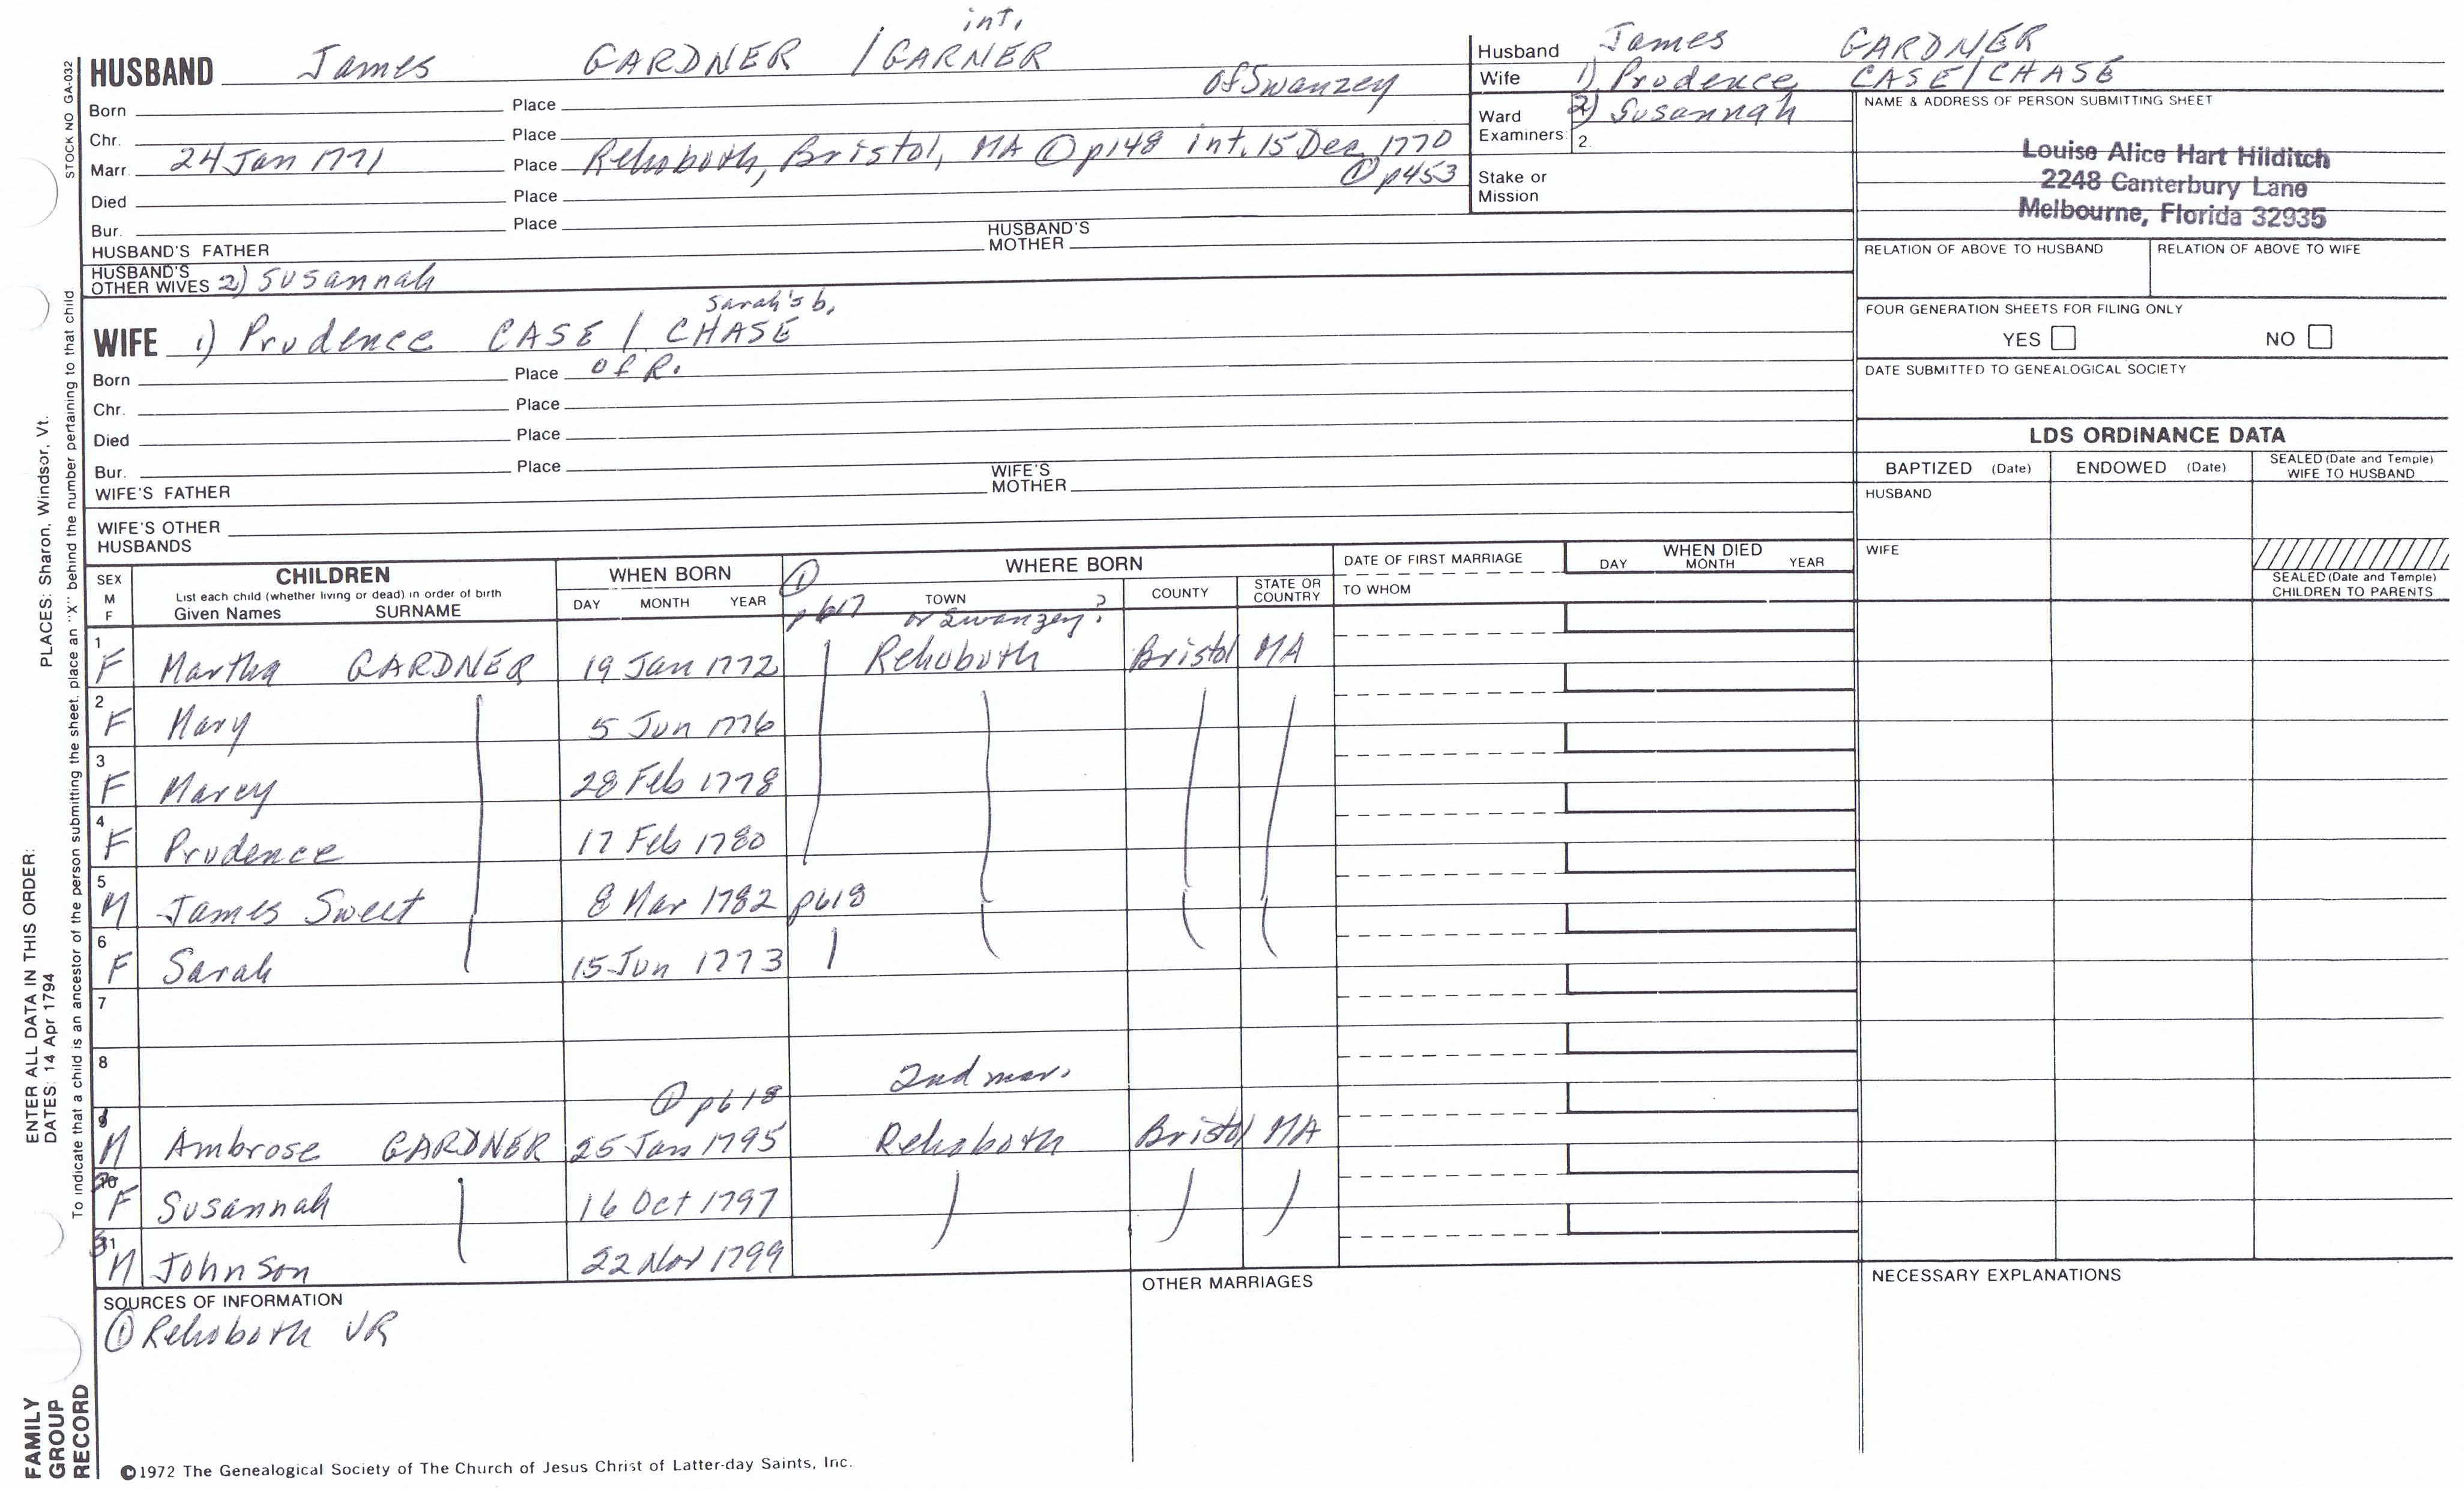 int.
HUSBAND James GARDNER / GARNER
of Swanzey
Born Place
Chr. Place
Marr. 24 Jan 1771 Place Rehoboth, Bristol, MA ① p148 int. 15 Dec 1770
① p453
Died Place
Bur. Place
HUSBAND'S FATHER HUSBAND'S MOTHER
HUSBAND'S OTHER WIVES 2) Susannah
Sarah's b.
WIFE 1) Prudence CASE / CHASE
Born Place of R.
Chr. Place
Died Place
Bur. Place
WIFE'S FATHER WIFE'S MOTHER
WIFE'S OTHER HUSBANDS
Husband James GARDNER
Wife 1) Prudence CASE / CHASE
Ward 2) Susannah
Examiners: 2.
Stake or
Mission
NAME & ADDRESS OF PERSON SUBMITTING SHEET
Louise Alice Hart Hilditch
2248 Canterbury Lane
Melbourne, Florida 32935
RELATION OF ABOVE TO HUSBAND RELATION OF ABOVE TO WIFE
FOUR GENERATION SHEETS FOR FILING ONLY
YES NO
DATE SUBMITTED TO GENEALOGICAL SOCIETY
LDS ORDINANCE DATA
BAPTIZED (Date) ENDOWED (Date) SEALED (Date and Temple) WIFE TO HUSBAND
HUSBAND
WIFE
SEALED (Date and Temple) CHILDREN TO PARENTS
SEX M F
CHILDREN
List each child (whether living or dead) in order of birth
Given Names SURNAME
WHEN BORN
DAY MONTH YEAR
①
p617
WHERE BORN
TOWN COUNTY STATE OR COUNTRY
or Swanzey?
?
DATE OF FIRST MARRIAGE
TO WHOM
WHEN DIED
DAY MONTH YEAR
1 F Martha GARDNER 19 Jan 1772 Rehoboth Bristol MA
2 F Mary 5 Jun 1776
3 F Marcy 28 Feb 1778
4 F Prudence 17 Feb 1780
5 M James Sweet 8 Mar 1782 p618
6 F Sarah 15 Jun 1773
7
8 2nd mar.
① p618
M Ambrose GARDNER 25 Jan 1795 Rehoboth Bristol MA
10 F Susannah 16 Oct 1797
11 M Johnson 22 Nov 1799
SOURCES OF INFORMATION
① Rehoboth VR
OTHER MARRIAGES
NECESSARY EXPLANATIONS
©1972 The Genealogical Society of The Church of Jesus Christ of Latter-day Saints, Inc.
STOCK NO GA-032
To indicate that a child is an ancestor of the person submitting the sheet, place an "X" behind the number pertaining to that child
ENTER ALL DATA IN THIS ORDER:
DATES: 14 Apr 1794 PLACES: Sharon, Windsor, Vt.
FAMILY
GROUP
RECORD